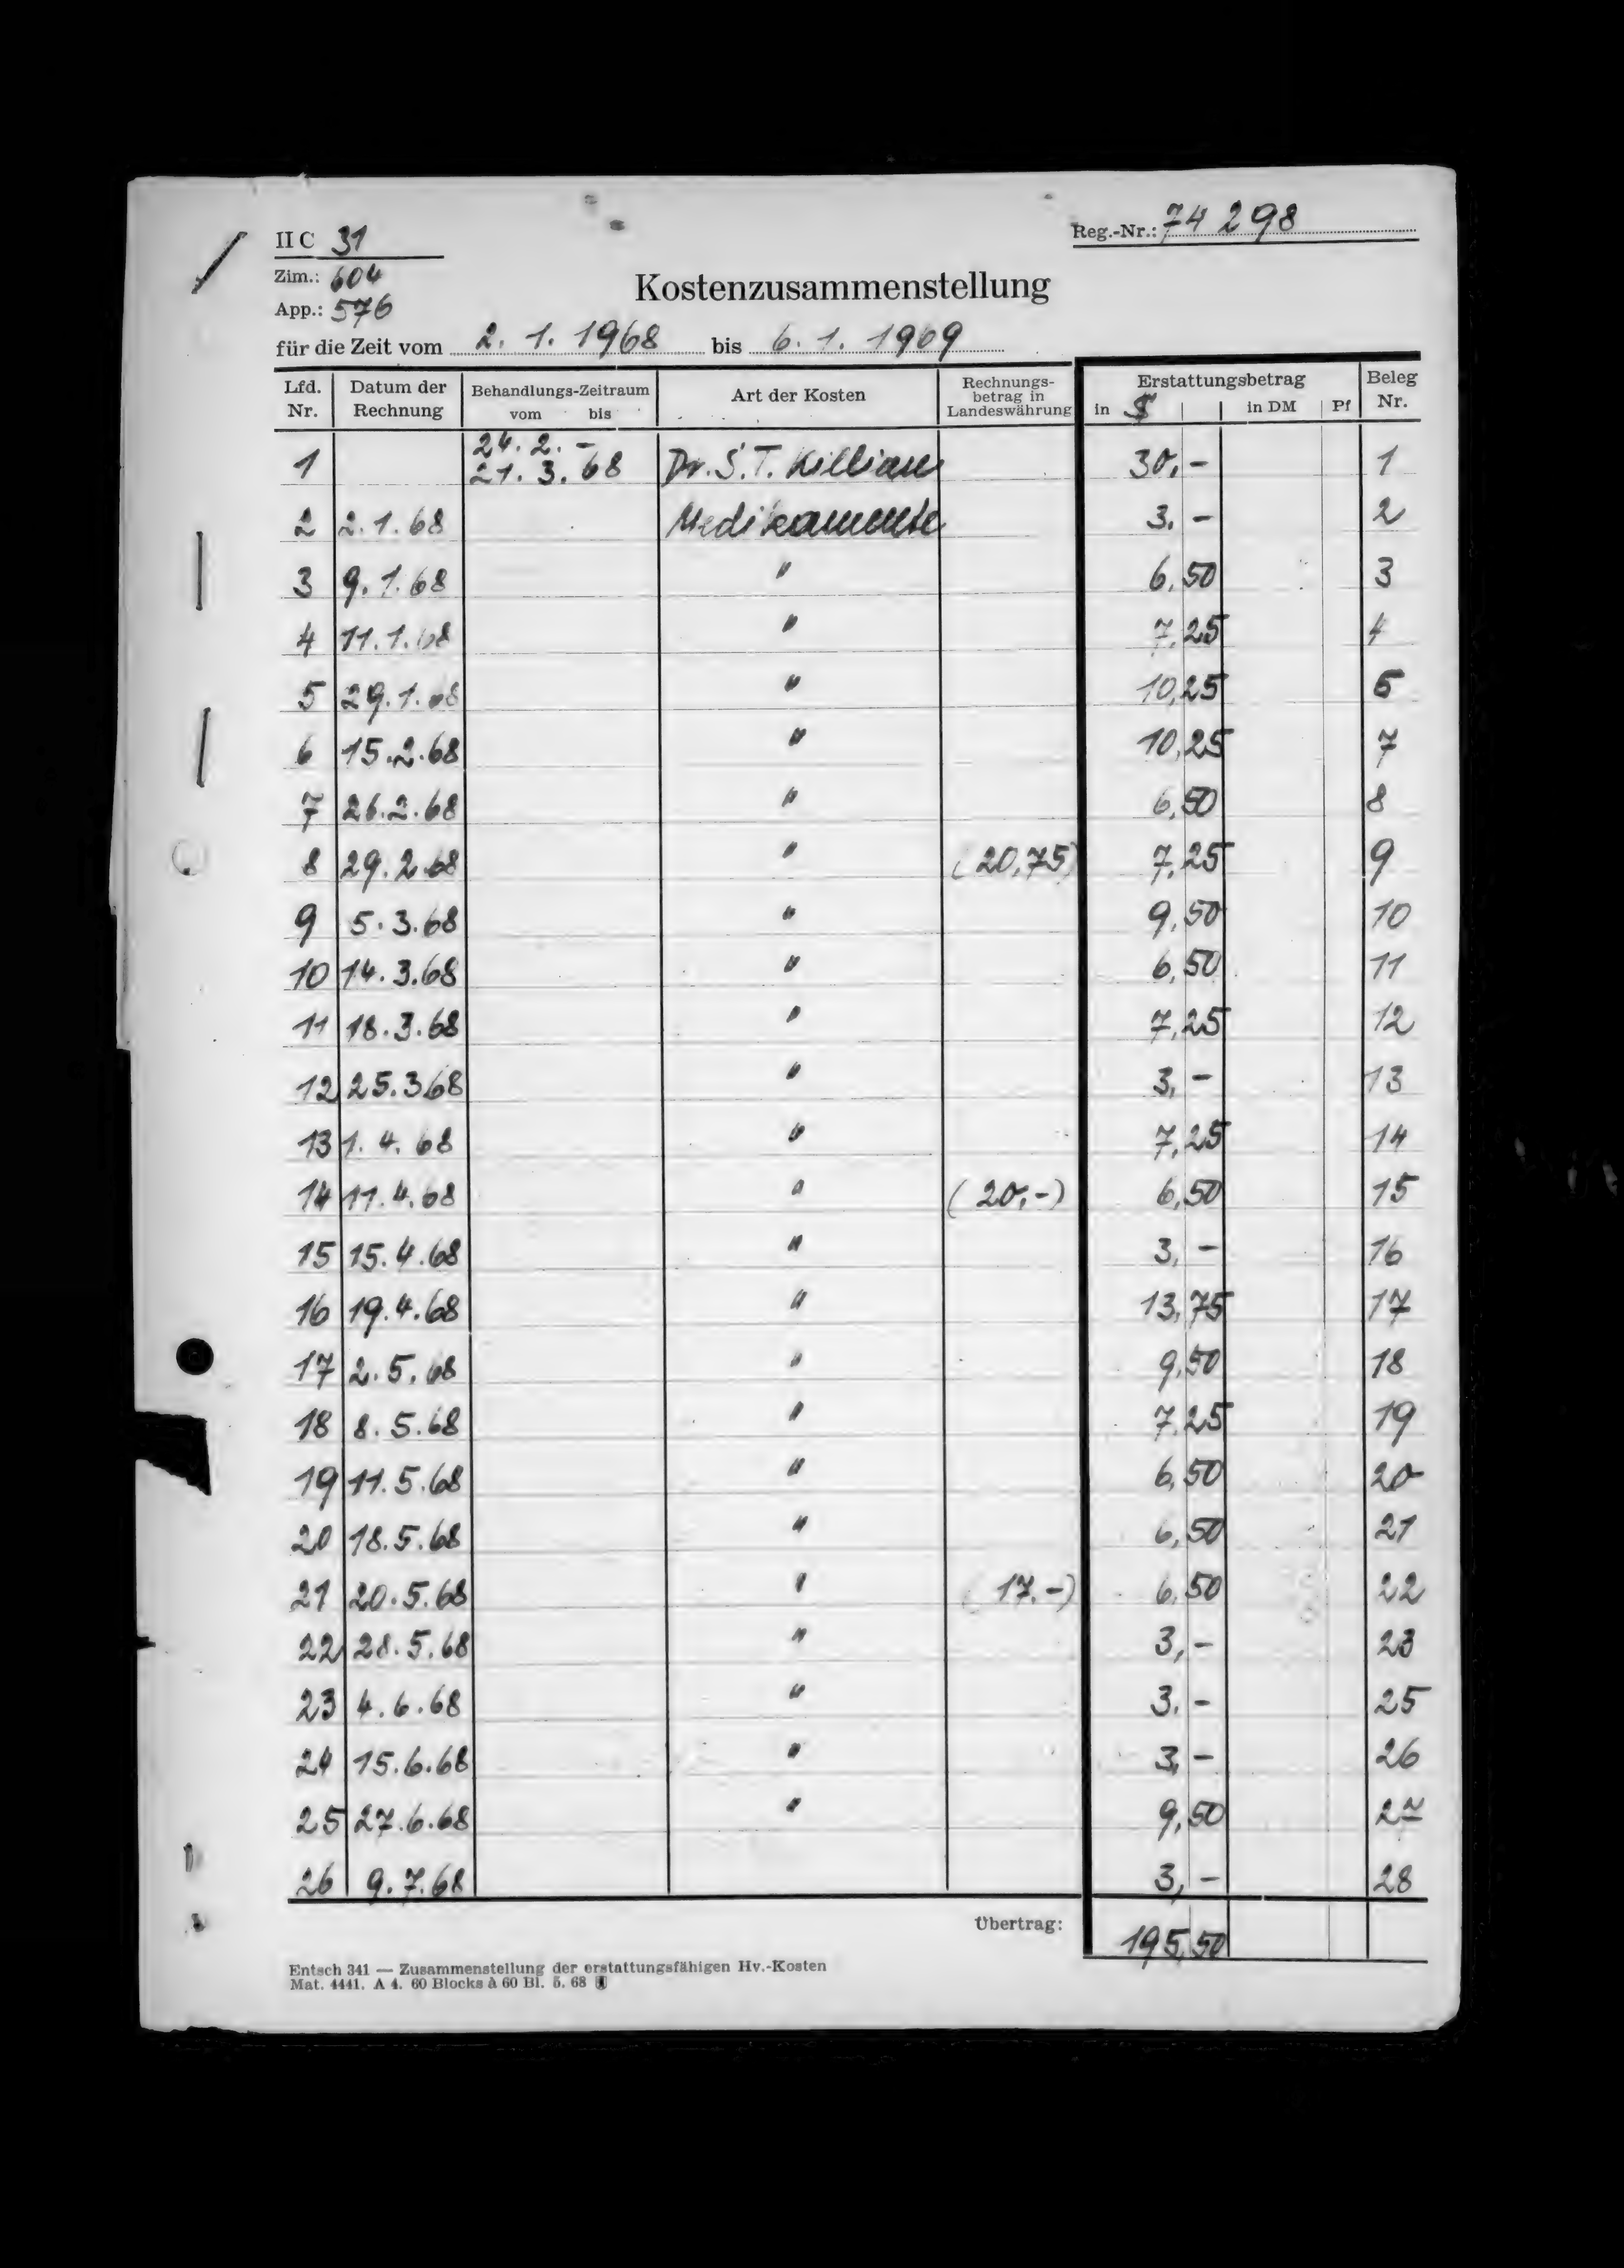 II C 31
Reg.-Nr.: 74 298
Zim.: 604
App.: 576
Kostenzusammenstellung
für die Zeit vom 2. 1. 1968 bis 6. 1. 1969
Lfd. Nr. Datum der Rechnung Behandlungs-Zeitraum vom bis Art der Kosten Rechnungs-betrag in Landeswährung Erstattungsbetrag in $ in DM Pf Beleg Nr.
1 24. 2. - 21. 3. 68 Dr. S. T. Killian 30,- 1
2 2.1.68 Medikamente 3,- 2
3 9.1.68 " 6,50 3
4 11.1.68 " 7,25 4
5 29.1.68 " 10,25 5
6 15.2.68 " 10,25 7
7 26.2.68 " 6,50 8
8 29.2.68 " (20,75) 7,25 9
9 5.3.68 " 9,50 10
10 14.3.68 " 6,50 11
11 18.3.68 " 7,25 12
12 25.3.68 " 3,- 13
13 1.4.68 " 7,25 14
14 11.4.68 " (20,-) 6,50 15
15 15.4.68 " 3,- 16
16 19.4.68 " 13,75 17
17 2.5.68 " 9,50 18
18 8.5.68 " 7,25 19
19 11.5.68 " 6,50 20
20 18.5.68 " 6,50 21
21 20.5.68 " (17,-) 6,50 22
22 28.5.68 " 3,- 23
23 4.6.68 " 3,- 25
24 15.6.68 " 3,- 26
25 27.6.68 " 9,50 27
26 9.7.68 3,- 28
Übertrag: 195,50
Entsch 341 — Zusammenstellung der erstattungsfähigen Hv.-Kosten
Mat. 4441. A 4. 60 Blocks à 60 Bl. 5. 68